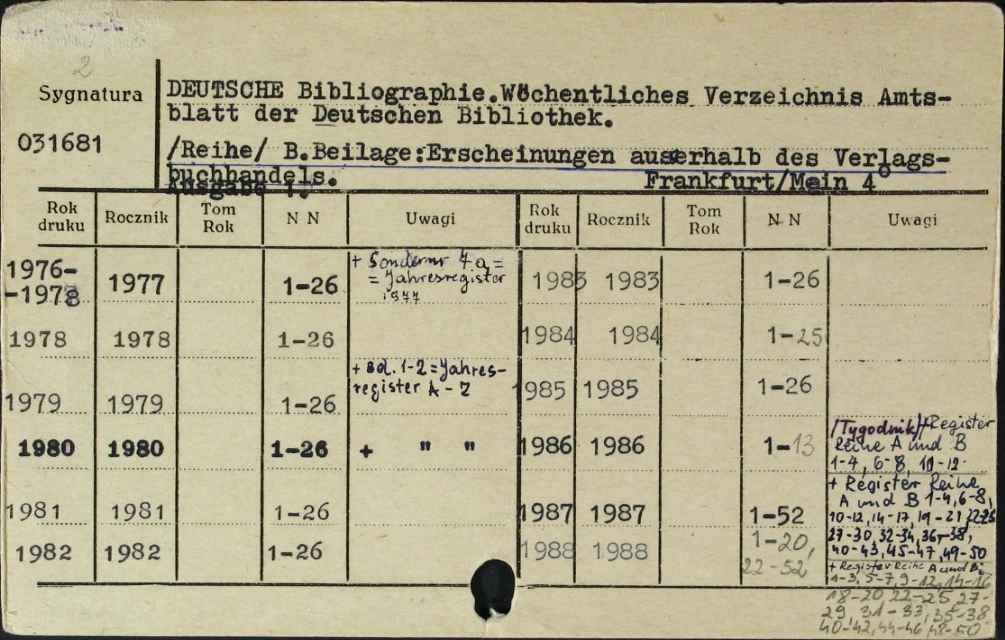 2
Sygnatura
031681
DEUTSCHE Bibliographie.Wöchentliches Verzeichnis Amts-
blatt der Deutschen Bibliothek.
/Reihe/ B.Beilage:Erscheinungen auserhalb des Verlags-
buchhandels.
Ausgabe 1. Frankfurt/Mein 4°
Rok druku Rocznik Tom Rok N N Uwagi Rok druku Rocznik Tom Rok N N Uwagi
1976-
-1978 1977 1-26 + Sondernr 7a =
= Jahresregister
1977
1978 1978 1-26
1979 1979 1-26 + Bd. 1-2 = Jahres-
register A - Z
1980 1980 1-26 + " "
1981 1981 1-26
1982 1982 1-26
1983 1983 1-26
1984 1984 1-25
1985 1985 1-26
1986 1986 1-13 /Tygodnik/+Register
Reihe A und B
1-4, 6-8, 10-12
1987 1987 1-52 + Register Reihe
A und B 1-4, 6-8,
10-12, 14-17, 19-21, 22-25
27-30, 32-34, 36-38,
40-43, 45-47, 49-50
1988 1988 1-20,
22-52 + Register Reihe A und B:
1-3, 5-7, 9-12, 14-16
18-20 22-25 27-
29 31-33, 35-38
40-42, 44-46, 48-50